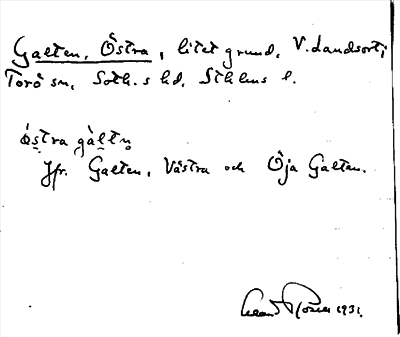 Galten, Östra, litet grund, V. Landsort;
Torö sn, Soth.s hd, Sthlms l.
östra galtn̥
Jfr. Galten, Västra och Öja Galten.
1931.